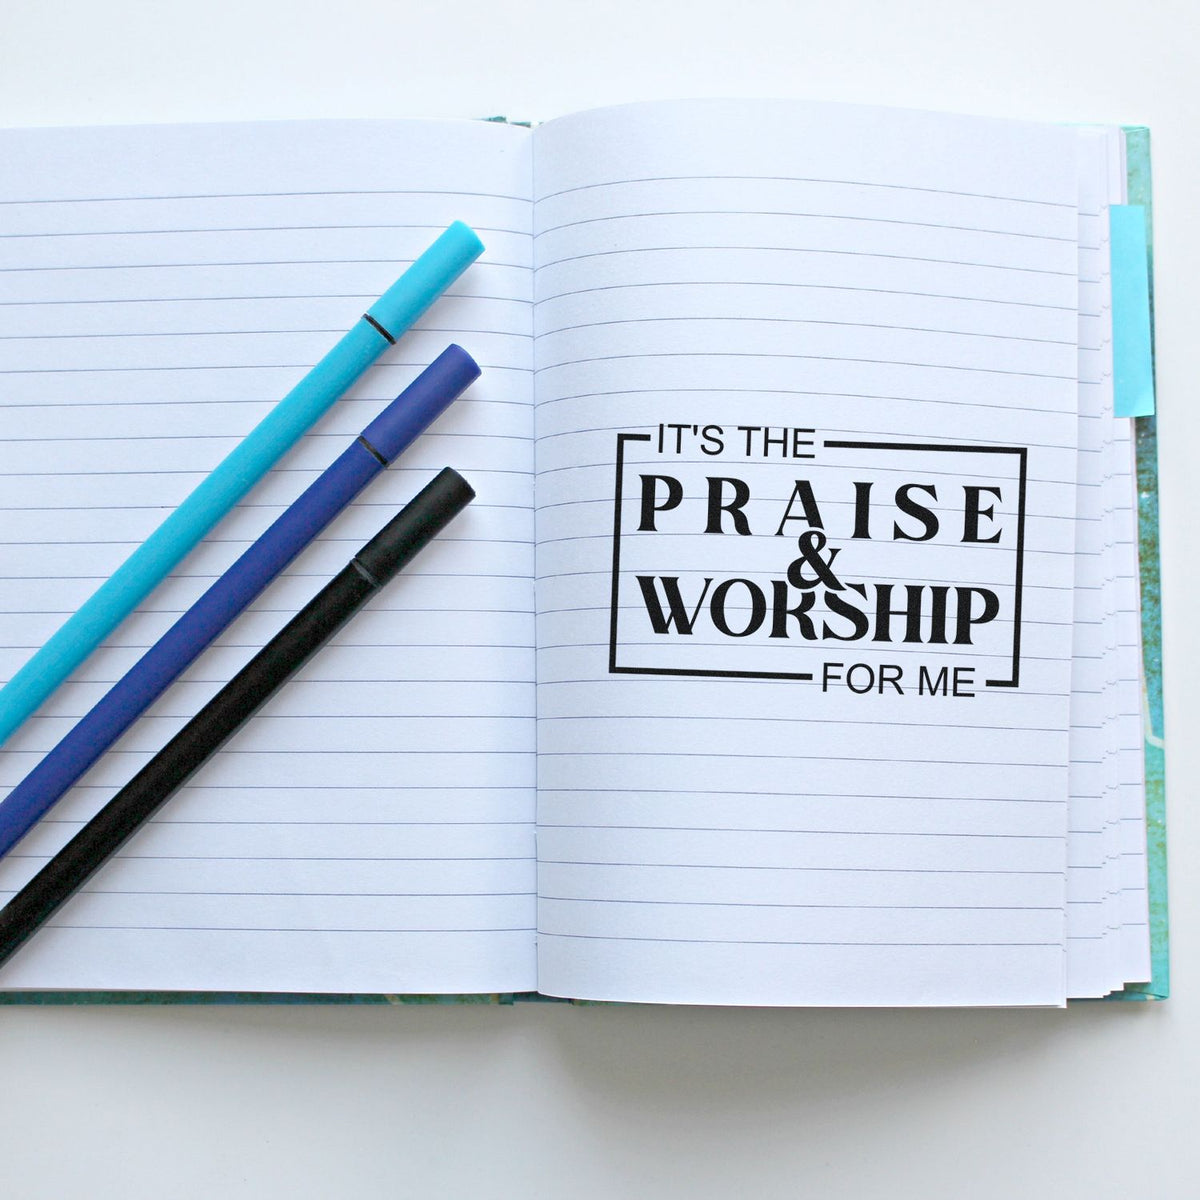 IT'S THE
PRAISE
&
WORSHIP
FOR ME